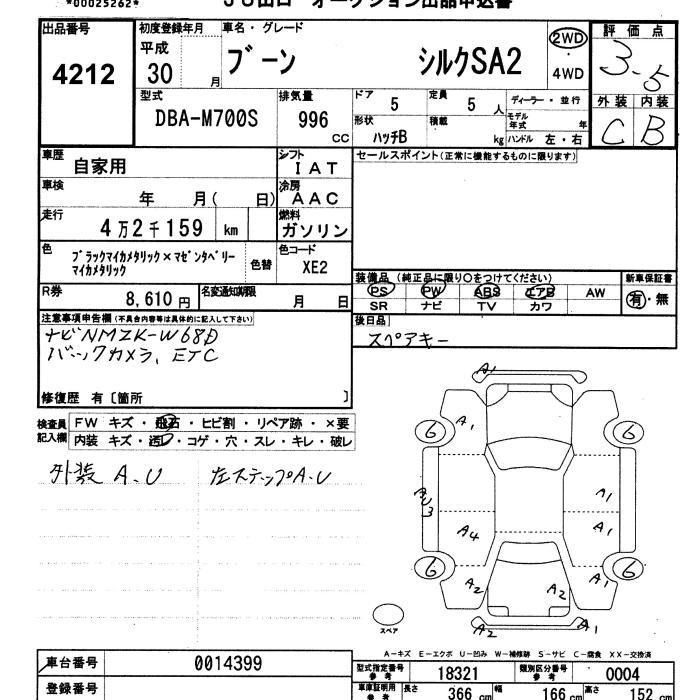 *00025262*
出品番号
4212
初度登録年月
平成
30 月
車名・グレード
ブーン シルクSA2
2WD
4WD
評価点
3.5
外装 内装
C B
型式
DBA-M700S
排気量
996 CC
ドア 5
定員 5 人
ディーラー・並行
モデル年式 年
形状 ハッチB
積載 kg
ハンドル 左・右
車歴 自家用
シフト IAT
車検 年 月( 日)
冷房 AAC
走行 4万2千159 km
燃料 ガソリン
色
ブラックマイカメタリック×マゼンタベリー
マイカメタリック
色替
色コード
XE2
R券 8,610円
名変通知期限 月 日
セールスポイント(正常に機能するものに限ります)
装備品 (純正品に限り○をつけてください)
新車保証書
PS PW ABS エアB AW
SR ナビ TV カワ
有・無
後日品
スペアキー
注意事項申告欄(不具合内容等は具体的に記入して下さい)
ナビNMZK-W68D
バックカメラ、ETC
修復歴 有〔箇所 〕
検査員記入欄
FW キズ・飛石・ヒビ割・リペア跡・×要
内装 キズ・汚レ・コゲ・穴・スレ・キレ・破レ
外装 A.U
左ステップA.U
A1
A1
6
6
A1
A1
A4
A1
AU3
6
6
A1
A2
A2
A2
A1
スペア
A-キズ E-エクボ U-凹み W-補修跡 S-サビ C-腐食 XX-交換済
車台番号 0014399
登録番号
型式指定番号参考 18321
類別区分番号参考 0004
車庫証明用参考
長さ 366 cm
幅 166 cm
高さ 152 cm